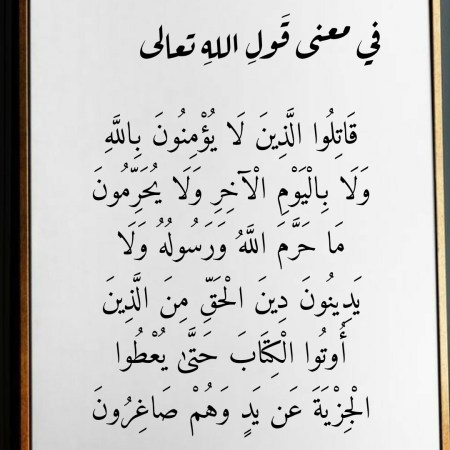 في معنى قَولِ اللهِ تعالى
قَاتِلُوا الَّذِينَ لَا يُؤْمِنُونَ بِاللَّهِ
وَلَا بِالْيَوْمِ الْآخِرِ وَلَا يُحَرِّمُونَ
مَا حَرَّمَ اللَّهُ وَرَسُولُهُ وَلَا
يَدِينُونَ دِينَ الْحَقِّ مِنَ الَّذِينَ
أُوتُوا الْكِتَابَ حَتَّىٰ يُعْطُوا
الْجِزْيَةَ عَن يَدٍ وَهُمْ صَاغِرُونَ